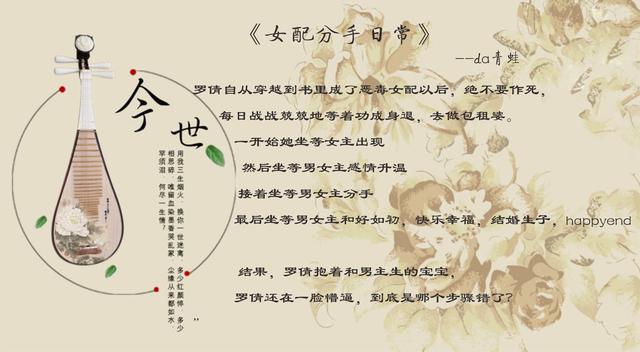 《女配分手日常》
--da青蛙
罗倩自从穿越到书里成了恶毒女配以后，绝不要作死，
每日战战兢兢地等着功成身退，去做包租婆。
一开始她坐等女主出现
然后坐等男女主感情升温
接着坐等男女主分手
最后坐等男女主和好如初，快乐幸福，结婚生子，happyend
结果，罗倩抱着和男主生的宝宝，
罗倩还在一脸懵逼，到底是哪个步骤错了？
今世
用我三生烟火，换你一世迷离
多少红颜悴，多少
相思碎，唯留血染墨香哭乱冢
尘缘从来都如水，
罕须泪，何尽一生情？
”